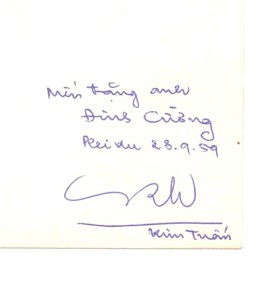 Mến tặng anh
Đinh Cường
Pleiku 23.9.59
Kim Tuấn